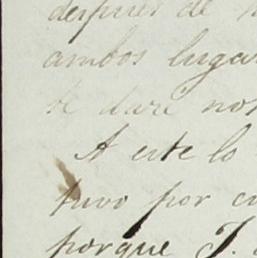 despues de
ambos lugar
te daré no
A este lo
tuvo por c
porque J.